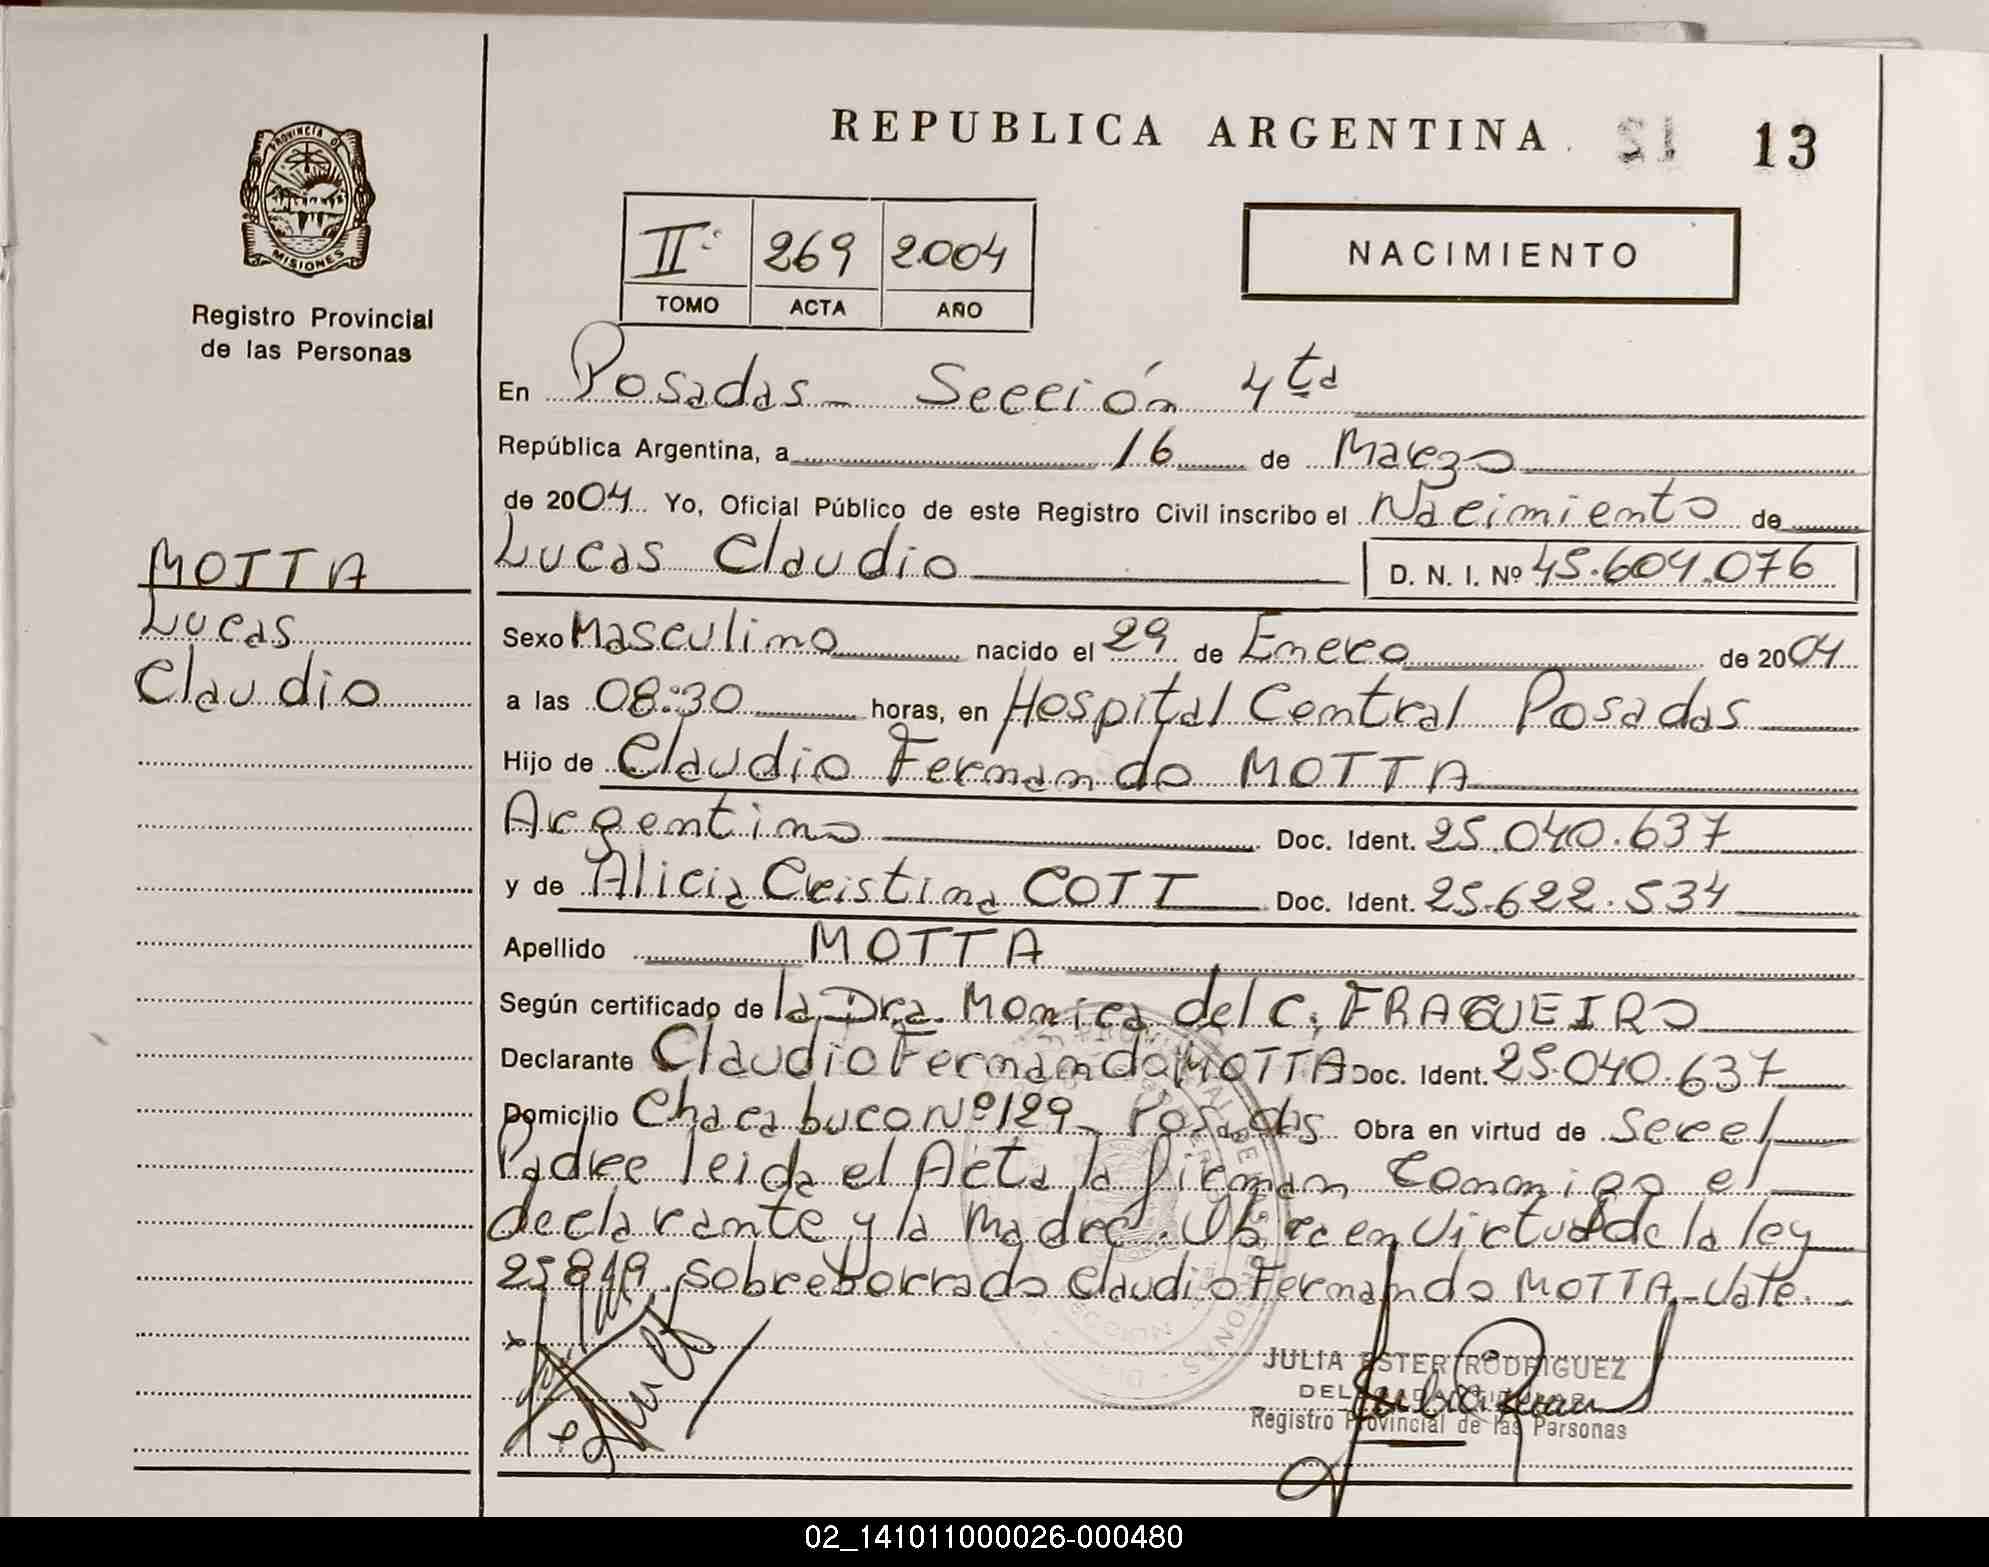 REPUBLICA ARGENTINA
13
PROVINCIA DE
MISIONES
Registro Provincial
de las Personas
II 269 2004
TOMO ACTA AÑO
NACIMIENTO
En Posadas - Sección 4ta
República Argentina, a 16 de Marzo
de 2004 Yo, Oficial Público de este Registro Civil inscribo el Nacimiento de
Lucas Claudio D. N. I. Nº 45.604.076
MOTTA
Lucas
Claudio
Sexo Masculino nacido el 29 de Enero de 2004
a las 08:30 horas, en Hospital Central Posadas
Hijo de Claudio Fernando MOTTA
Argentino Doc. Ident. 25.040.637
y de Alicia Cristina COTT Doc. Ident. 25.622.534
Apellido MOTTA
Según certificado de la Dra. Monica del C. FRAGUEIRO
Declarante Claudio Fernando MOTTA Doc. Ident. 25.040.637
Domicilio Chacabuco Nº 129 - Posadas Obra en virtud de Ser el
Padre leida el Acta la firman Conmigo el
declarante y la Madre. Obra en Virtud de la ley
25819. Sobreborrado Claudio Fernando MOTTA - Vale.
JULIA ESTER RODRIGUEZ
DELEGADA TITULAR
Registro Provincial de las Personas
02_141011000026-000480